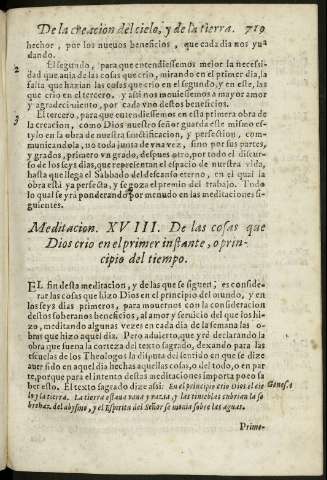 De la creacion del cielo, y de la tierra. 719
hechor, por los nueuos beneficios, que cada dia nos yua
dando.
2 El segundo, para que entendiessemos mejor la necessi-
dad que auia de las cosas que crio, mirando en el primer dia, la
falta que hazian las cosas que crio en el segundo, y en este, las
que crio en el tercero. y assi nos mouiessemos a mayor amor
y agradecimiento, por cada vno destos beneficios.
3 El tercero, para que entendiessemos en esta primera obra de
la creacion, como Dios nuestro señor guarda este mismo es-
tylo en la obra de nuestra sanctificacion, y perfection, com-
municandola, no toda junta de vna vez, sino por sus partes,
y grados, primero vn grado, despues otro, por todo el discur-
so de los seys dias, que representan el espacio de nuestra vida,
hasta que llega el Sabbado del descanso eterno, en el qual la
obra està ya perfecta, y se goza el premio del trabajo. Todo
lo qual se yrà ponderando por menudo en las meditaciones si-
guientes.
Meditacion. XVIII. De las cosas que
Dios crio en el primer instante, o prin-
cipio del tiempo.
EL fin desta meditacion, y de las que se siguen, es conside-
rar las cosas que hizo Dios en el principio del mundo, y en
los seys dias primeros, para mouernos con la consideracion
destos soberanos beneficios, al amor y seruicio del que los hi-
zo, meditando algunas vezes en cada dia de la semana las o-
bras que hizo aquel dia. Pero aduierto, que yrè declarando la
obra que suena la corteza del texto sagrado, dexando para las
escuelas de los Theologos la disputa del sentido en que se dize
auer sido en aquel dia hechas aquellas cosas, o del todo, o en par
te, porque para el intento destas meditaciones importa poco sa
ber esto. El texto sagrado dize assi: En el principio crio Dios el cie Genes. 1
lo y la tierra. La tierra estaua vana y vazia, y las tinieblas cubrian la so
brehaz del abysmo, y el Espiritu del Señor se mouia sobre las aguas.
Prime-